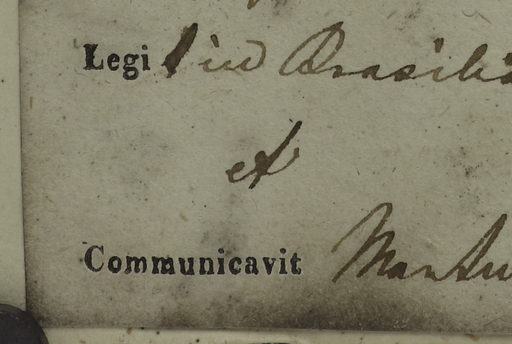 Legi in Brasilia
et
Communicavit Martius